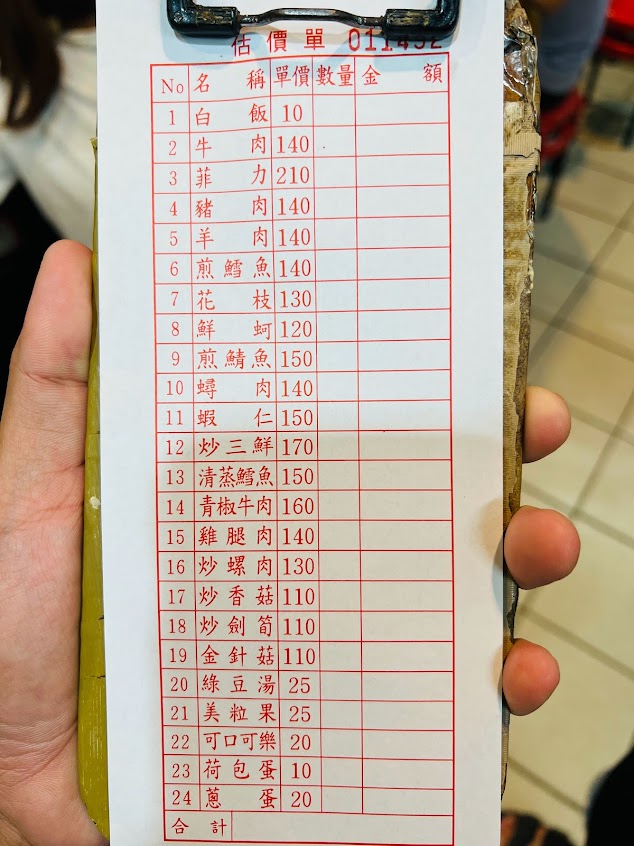 估價單 011492
No 名稱 單價 數量 金額
1 白飯 10
2 牛肉 140
3 菲力 210
4 豬肉 140
5 羊肉 140
6 煎鱈魚 140
7 花枝 130
8 鮮蚵 120
9 煎鯖魚 150
10 蟳肉 140
11 蝦仁 150
12 炒三鮮 170
13 清蒸鱈魚 150
14 青椒牛肉 160
15 雞腿肉 140
16 炒螺肉 130
17 炒香菇 110
18 炒劍筍 110
19 金針菇 110
20 綠豆湯 25
21 美粒果 25
22 可口可樂 20
23 荷包蛋 10
24 蔥蛋 20
合計